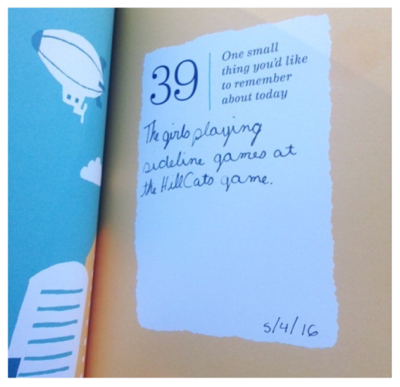 39
One small
thing you'd like
to remember
about today
The girls playing
sideline games at
the HillCats game.
5/4/16